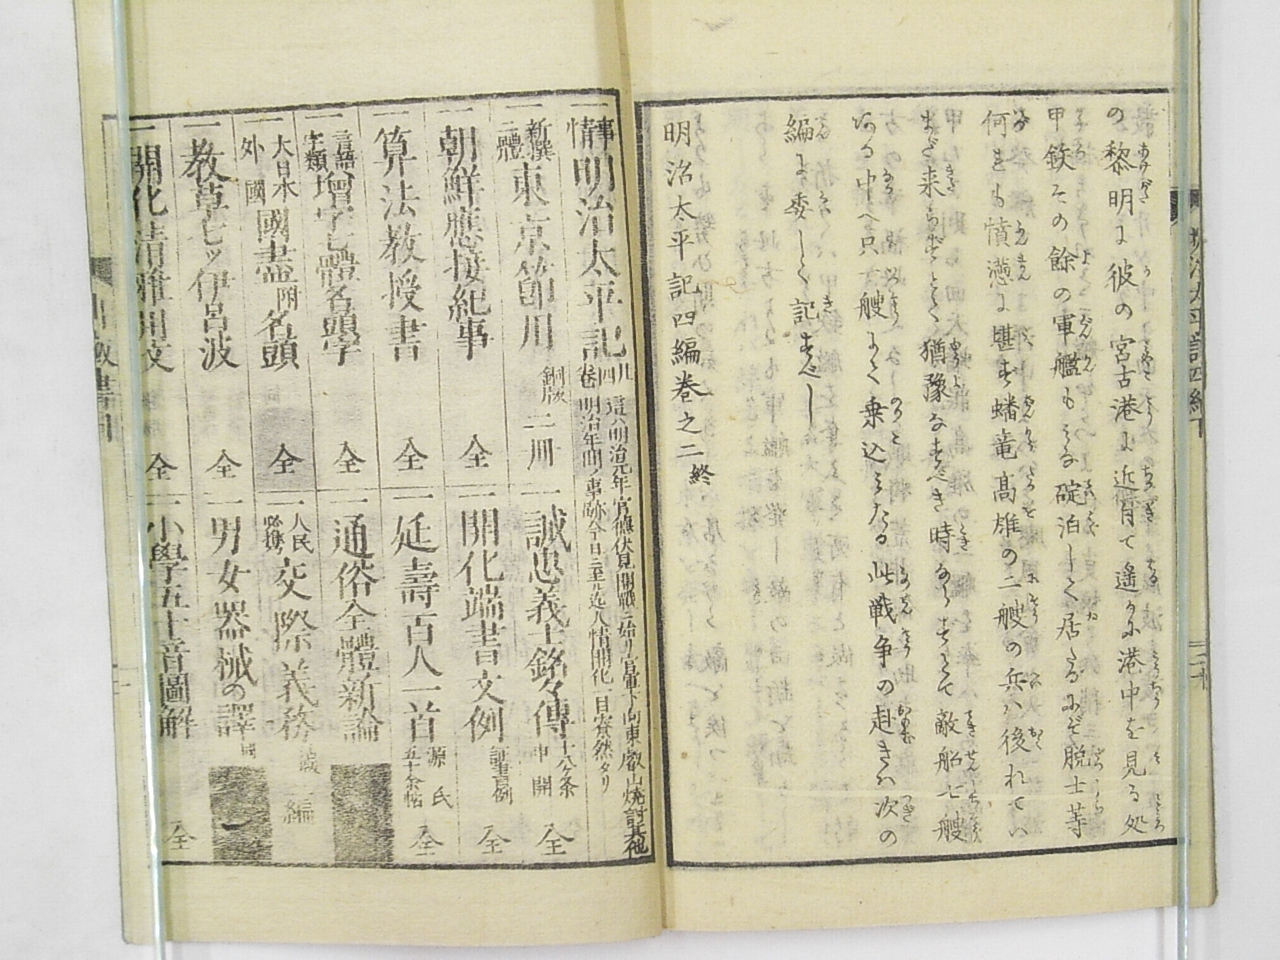 の黎明に彼の宮古港に近着て遙かに港中を見る処
甲鉄その餘の軍艦もみな碇泊して居たるにぞ脱士等
何れも憤懣に堪ず蟠竜高雄の二艘の兵ハ後れてい
まだ来らずとて猶豫なすべき時ならずとて敵船七艘
ある中へ只一艘にて乗込みたる此戦争の赴きハ次の
編に委しく記すべし
明治太平記四編巻之二終
一事情明治太平記
這ハ明治元年官德伏見開戦ニ始リ官軍下向東叡山焼討其他
明治年間ノ事跡今日ニ至ル迄人情開化一目寮然タリ
一新撰二體東京節用 銅版 二冊
一誠忠義士銘々傳 十八ケ条申開 全
一朝鮮應接紀事 全
一開化端書文例 証書文例 全
一算法教授書 全
一延壽百人一首 源氏五十余帖 全
一言語字類増字七體名頭字 全
一通俗全體新論
一大日本外國國盡名頭 全
一人民必携交際義務 編
一教草七ッ伊呂波 全
一男女器械の譯
一開化清雅用文 全
一小學五十音圖解 全